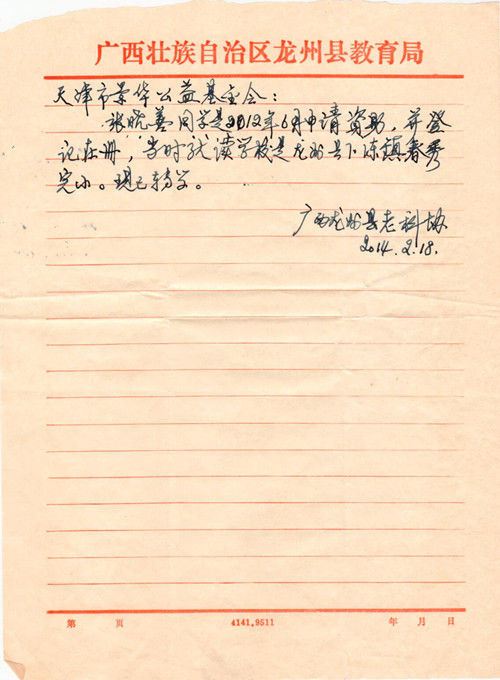 广西壮族自治区龙州县教育局
天津市景华公益基金会：
张晓善同学是2012年6月申请资助，并登
记在册，当时就读学校是龙州县下冻镇春秀
完小。现已转学。
广西龙州县老科协
2014.2.18.
第 页 4141.9511 年 月 日